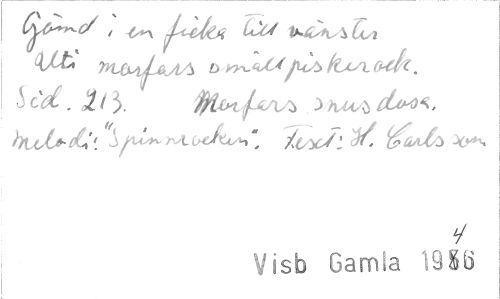 Gömd i en ficka till vänster
uti morfars smällpiskerock.
Sid. 213. Morfars snusdosa.
Melodi: "Spinnrocken". Text: H. Carlsson
Visb Gamla 1946